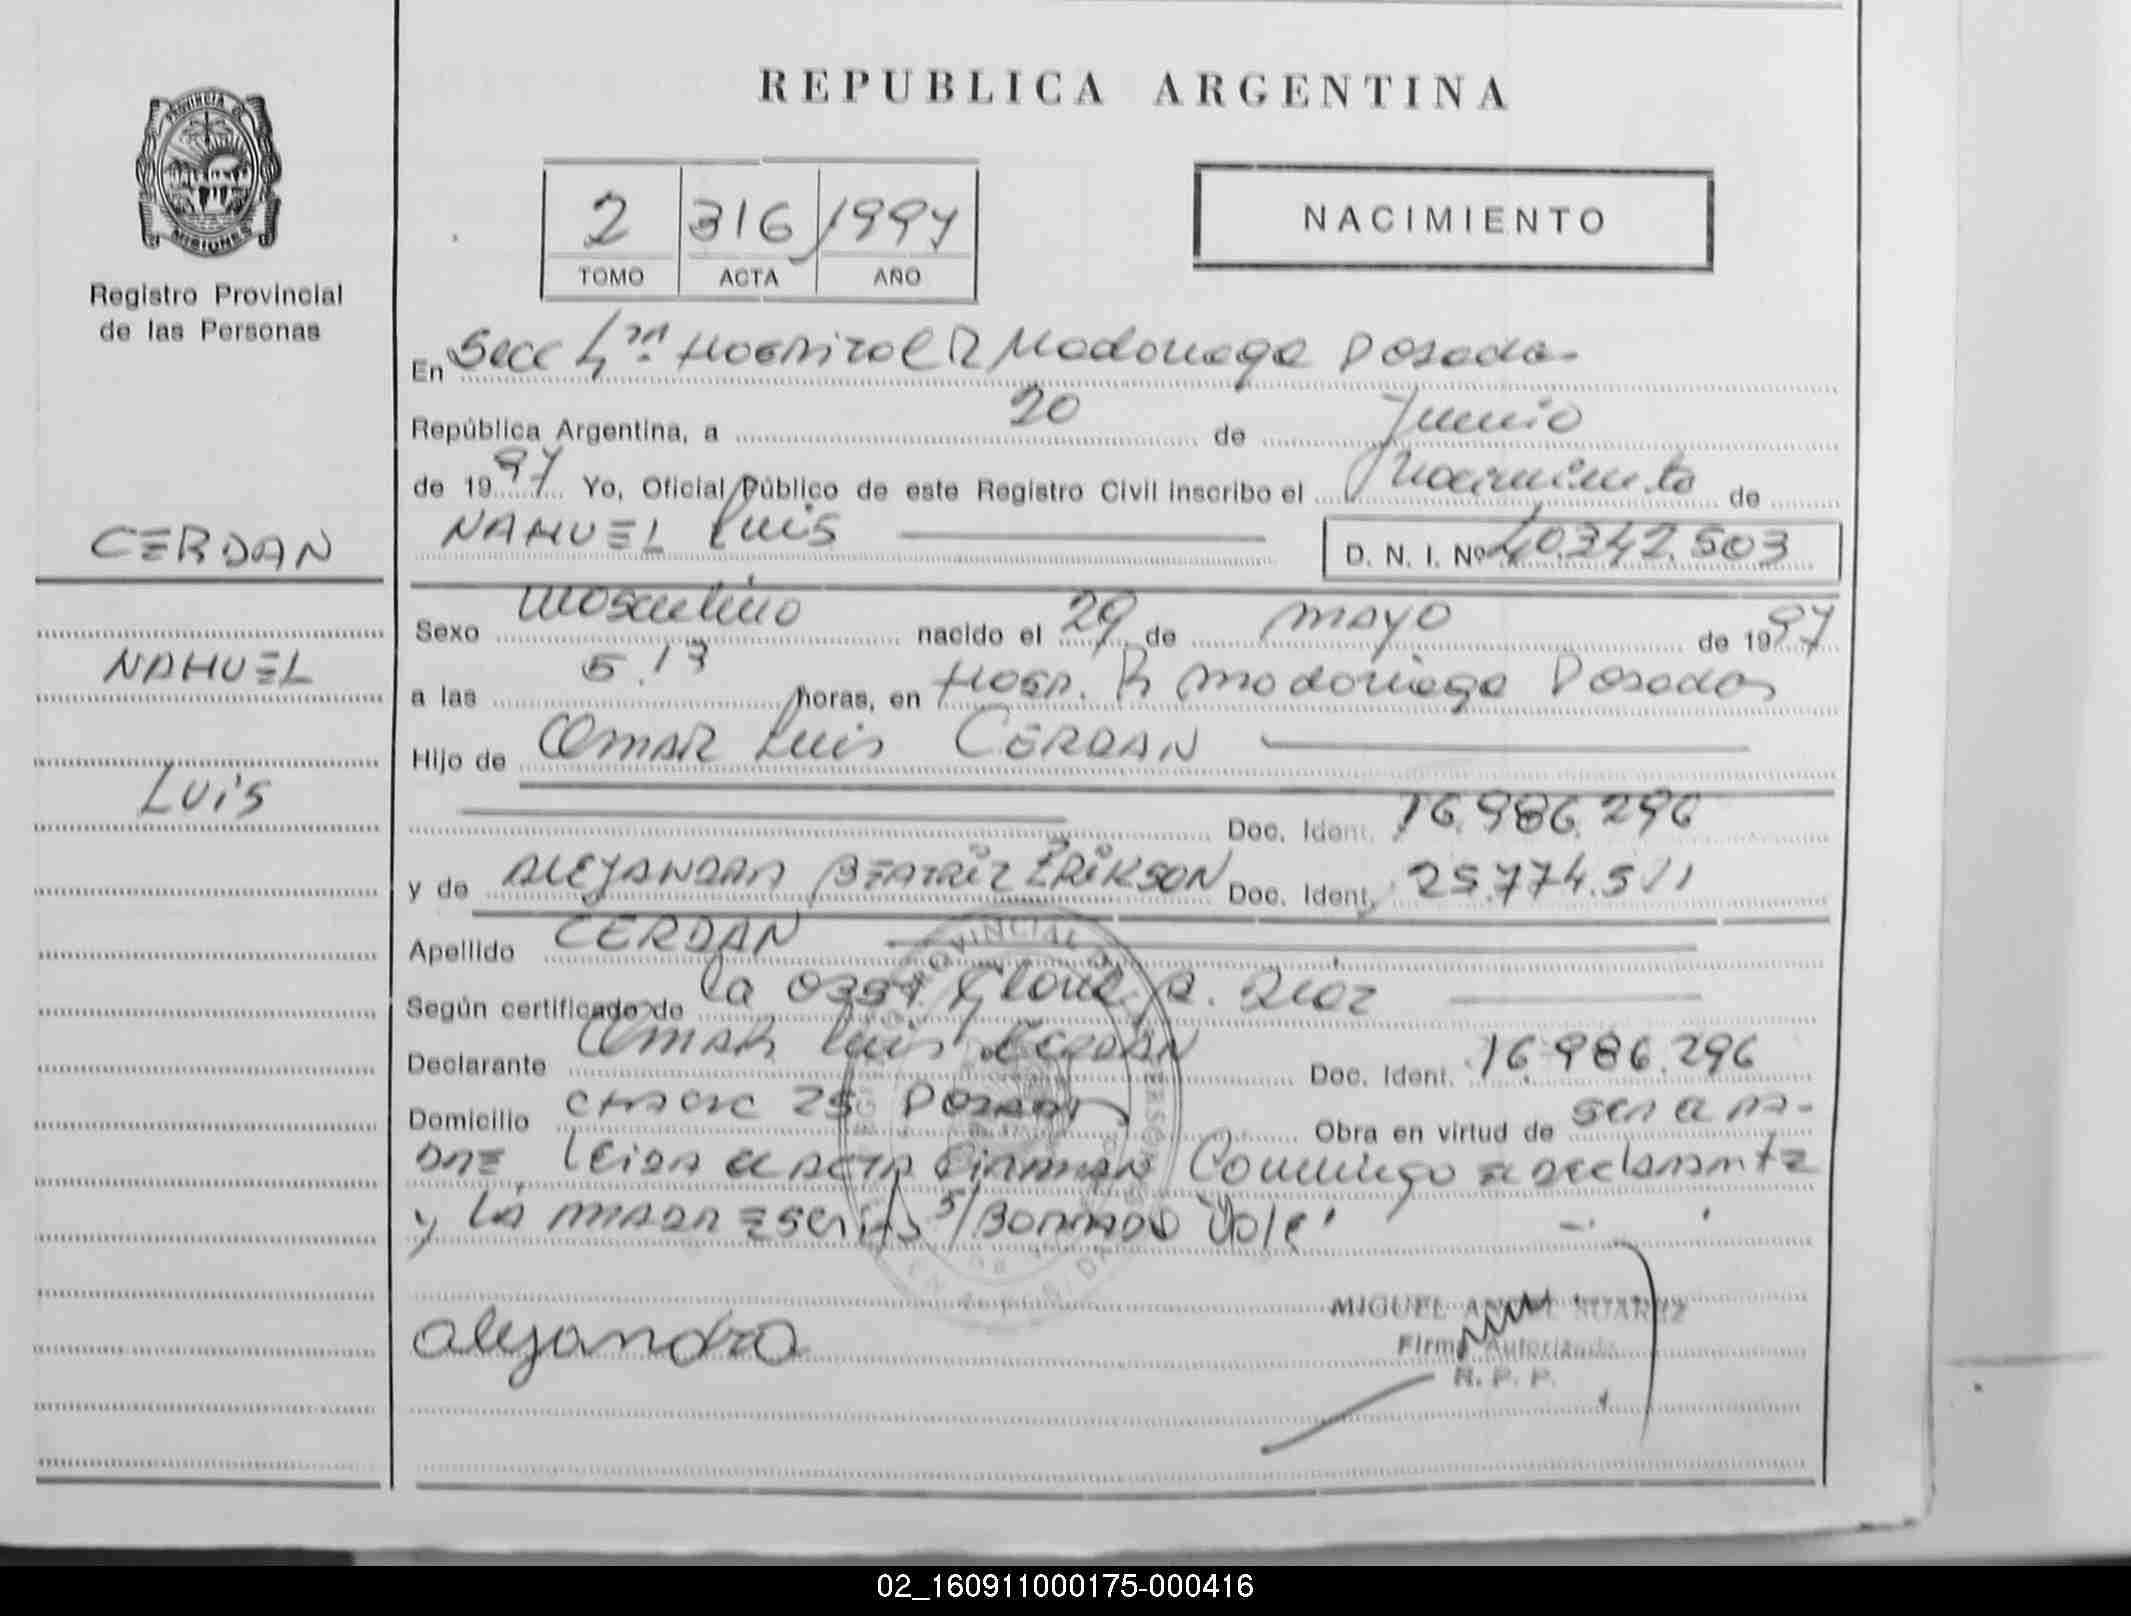 REPUBLICA ARGENTINA
PROVINCIA DE
MISIONES
Registro Provincial
de las Personas
2 316 1997
TOMO ACTA AÑO
NACIMIENTO
En Secc 4ta Hospital R Madariaga Posadas
República Argentina, a 20 de Junio
de 1997 Yo, Oficial Público de este Registro Civil inscribo el Nacimiento de
NAHUEL Luis D. N. I. Nº 40.342.503
CERDAN
NAHUEL
Luis
Sexo masculino nacido el 29 de mayo de 1997
a las 5.13 horas, en Hosp. R Madariaga Posadas
Hijo de Omar Luis CERDAN
Doc. Ident. 16.986.296
y de ALEJANDRA BEATRIZ ERIKSON Doc. Ident. 25.774.511
Apellido CERDAN
Según certificado de la Obst. R. Diaz
Declarante Omar Luis CERDAN Doc. Ident. 16.986.296
Domicilio CHACRA 25 Posadas Obra en virtud de ser el pa-
dre Leida el acta firman Conmigo el declarante
y la madre S/Borrado Vale
alejandra
MIGUEL ANGEL SUAREZ
Firma Autorizada
R. P. P.
02_160911000175-000416